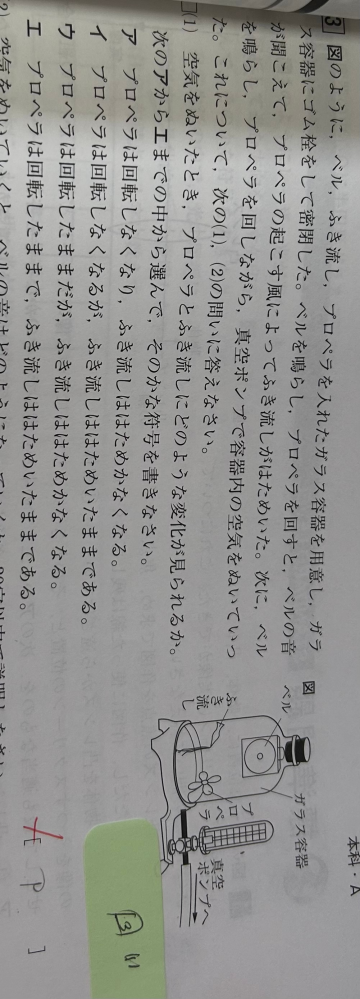 本科・A
3 図のように，ベル，ふき流し，プロペラを入れたガラス容器を用意し，ガラ
ス容器にゴム栓をして密閉した。ベルを鳴らし，プロペラを回すと，ベルの音
が聞こえて，プロペラの起こす風によってふき流しがはためいた。次に，ベル
を鳴らし，プロペラを回しながら，真空ポンプで容器内の空気をぬいていっ
た。これについて，次の(1)，(2)の問いに答えなさい。
□(1) 空気をぬいたとき，プロペラとふき流しにどのような変化が見られるか。
次のアからエまでの中から選んで，そのかな符号を書きなさい。
ア プロペラは回転しなくなり，ふき流しははためかなくなる。
イ プロペラは回転しなくなるが，ふき流しははためいたままである。
ウ プロペラは回転したままだが，ふき流しははためかなくなる。
エ プロペラは回転したままで，ふき流しははためいたままである。
2) 空気をぬいていくと，ベルの音はどのように
図
ベル
ガラス容器
ふき流し
プロペラ
真空ポンプへ
[ ]
3 (1)